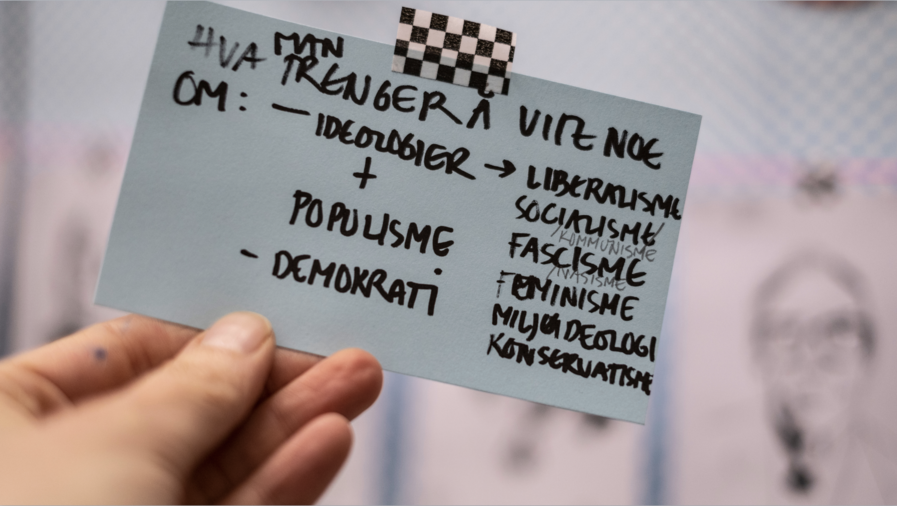 HVA MAN
TRENGER Å VITE NOE
OM: — IDEOLOGIER → LIBERALISME
+
POPULISME
- DEMOKRATI
SOCIALISME
/KOMMUNISME
FASCISME
/NASISME
FEMINISME
MILJØIDEOLOGI
KONSERVATISME